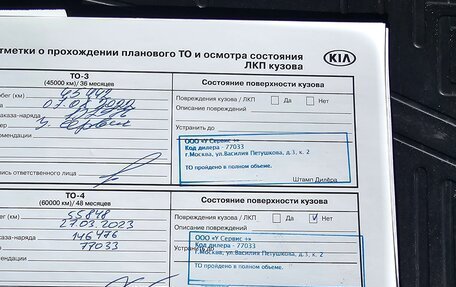 тметки о прохождении планового ТО и осмотра состояния
ЛКП кузова
KIA
ТО-3
(45000 км)/ 36 месяцев
Состояние поверхности кузова
обег (км)
Повреждения кузова / ЛКП Да Нет
Описание повреждений
аказа-наряда
Устранить до
ООО «У Сервис +»
Код дилера - 77033
г.Москва, ул.Василия Петушкова, д.3, к. 2
ТО пройдено в полном объеме.
омендации
пись ответственного лица
Штамп Дилера
ТО-4
(60000 км)/ 48 месяцев
Состояние поверхности кузова
55848
Повреждения кузова / ЛКП Да Нет
27.03.2023
Описание повреждений
заказа-наряда 146476
Устранить до
77033
ООО «У Сервис +»
Код дилера - 77033
г.Москва, ул.Василия Петушкова, д.3, к. 2
ТО пройдено в полном объеме.
омендации